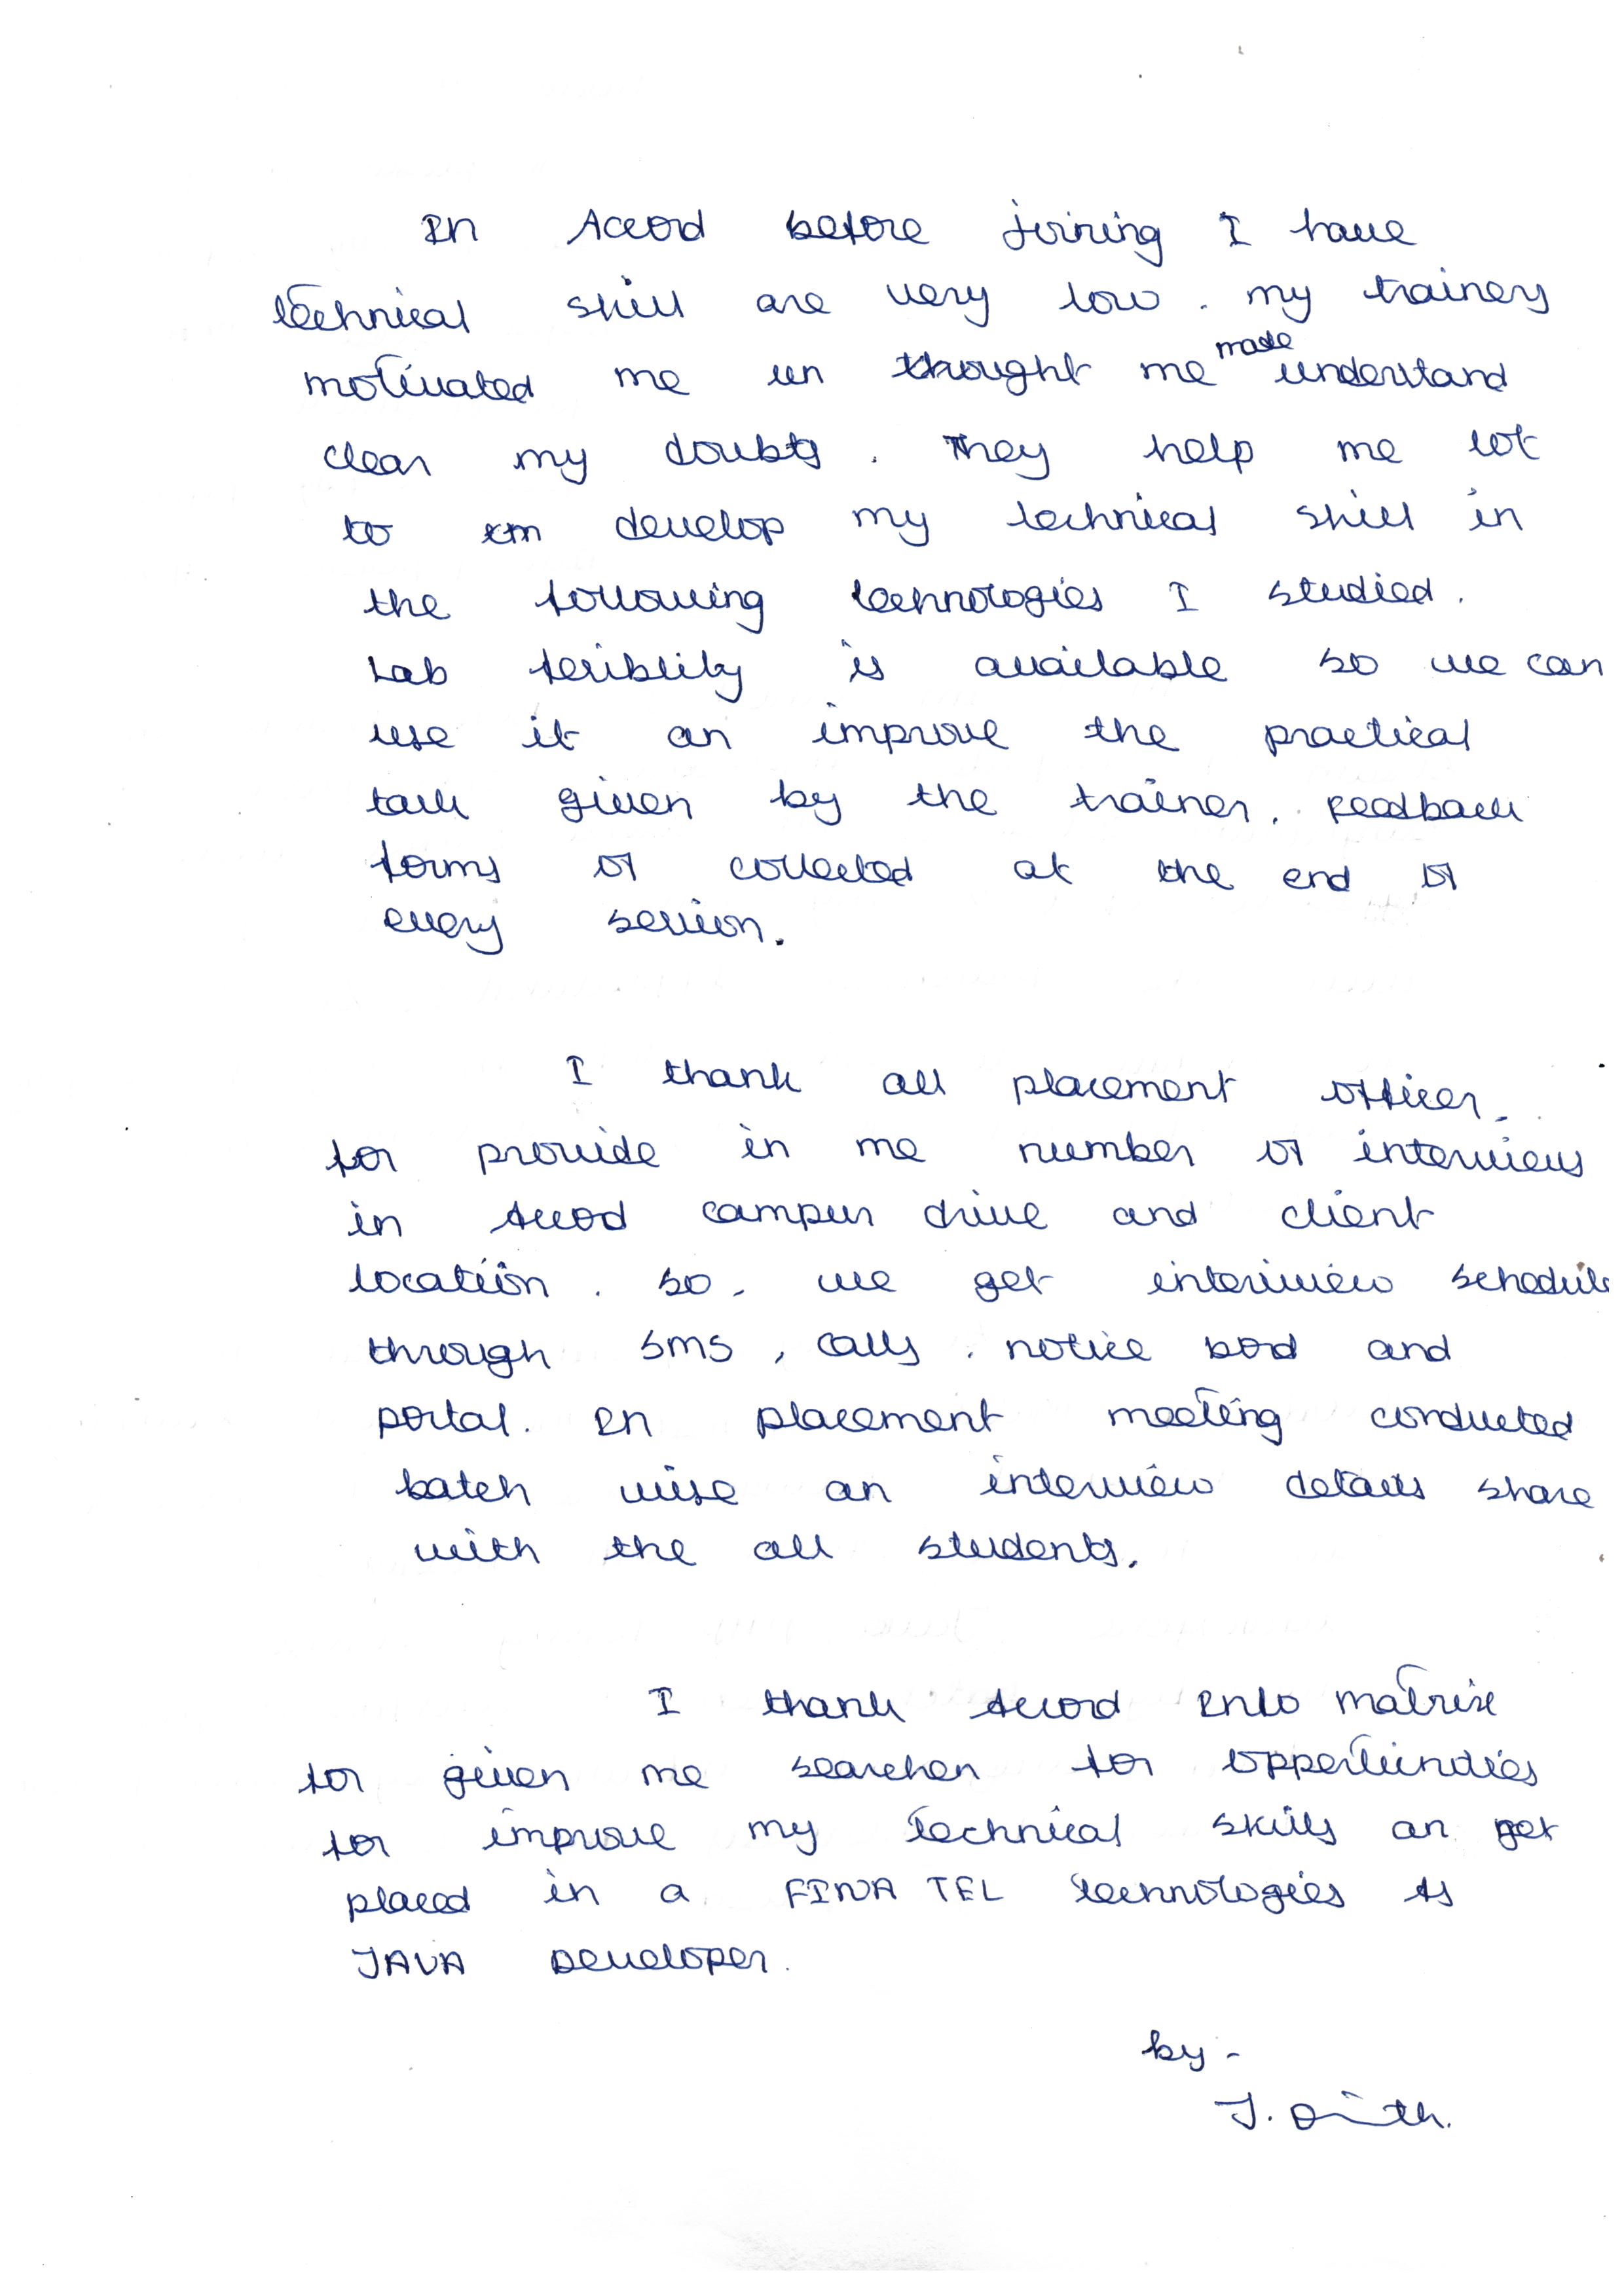 In Accord before joining I have
technical skill are very low. my trainers
motivated me un thought me made understand
clear my doubts. They help me lot
to em develop my technical skill in
the following technologies I studied.
Lab feriblity is available so we can
use it an improve the practical
task given by the trainer. Feedback
forms of collected at the end of
every session.
I thank all placement officer
for provide in me number of interviews
in Accod campus drive and client
location. so, we get interiview schedule
through SMS, calls, notice bord and
portal. In placement meeting conducted
batch wise an interview details share
with the all students.
I thank Accord Info matrix
for given me searcher for
for improve my technical skills an get
placed in a FINATEL technologies As
JAVA Developer.
by -
J.